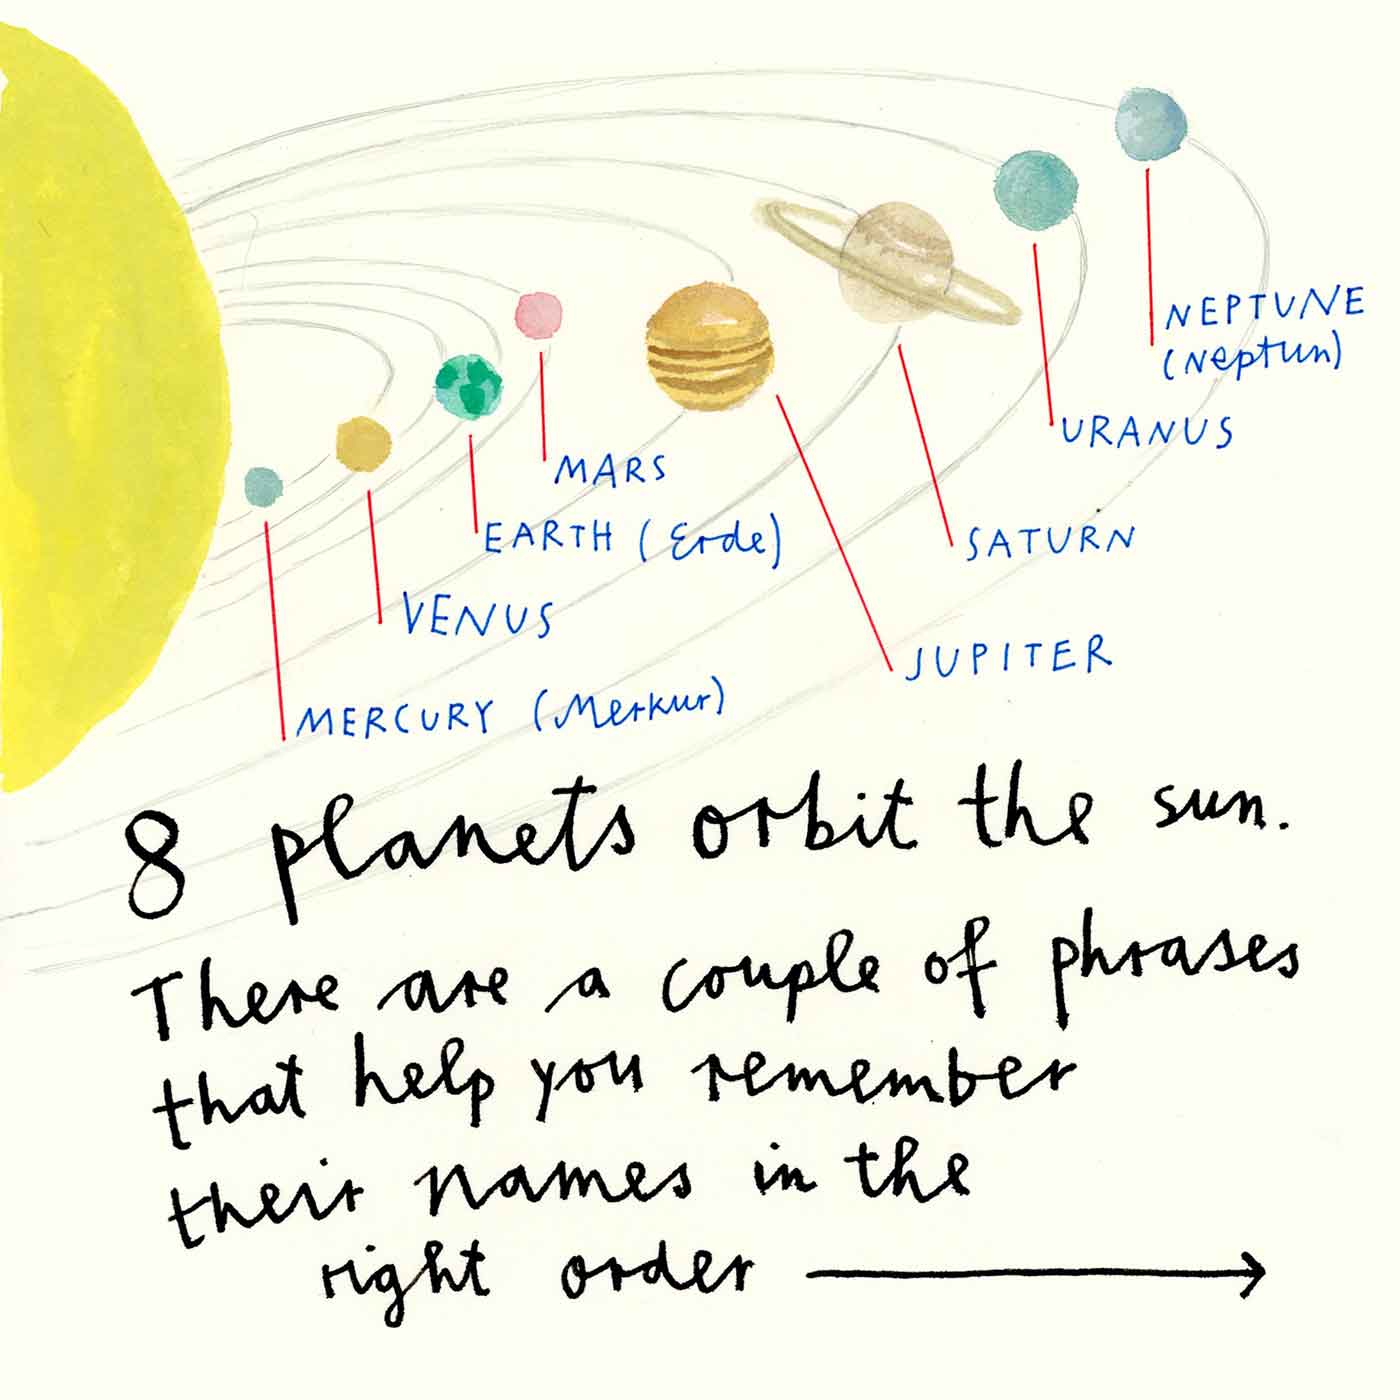 NEPTUNE
(Neptun)
URANUS
MARS
EARTH (Erde)
SATURN
VENUS
JUPITER
MERCURY (Merkur)
8 planets orbit the sun.
There are a couple of phrases
that help you remember
their names in the
right order